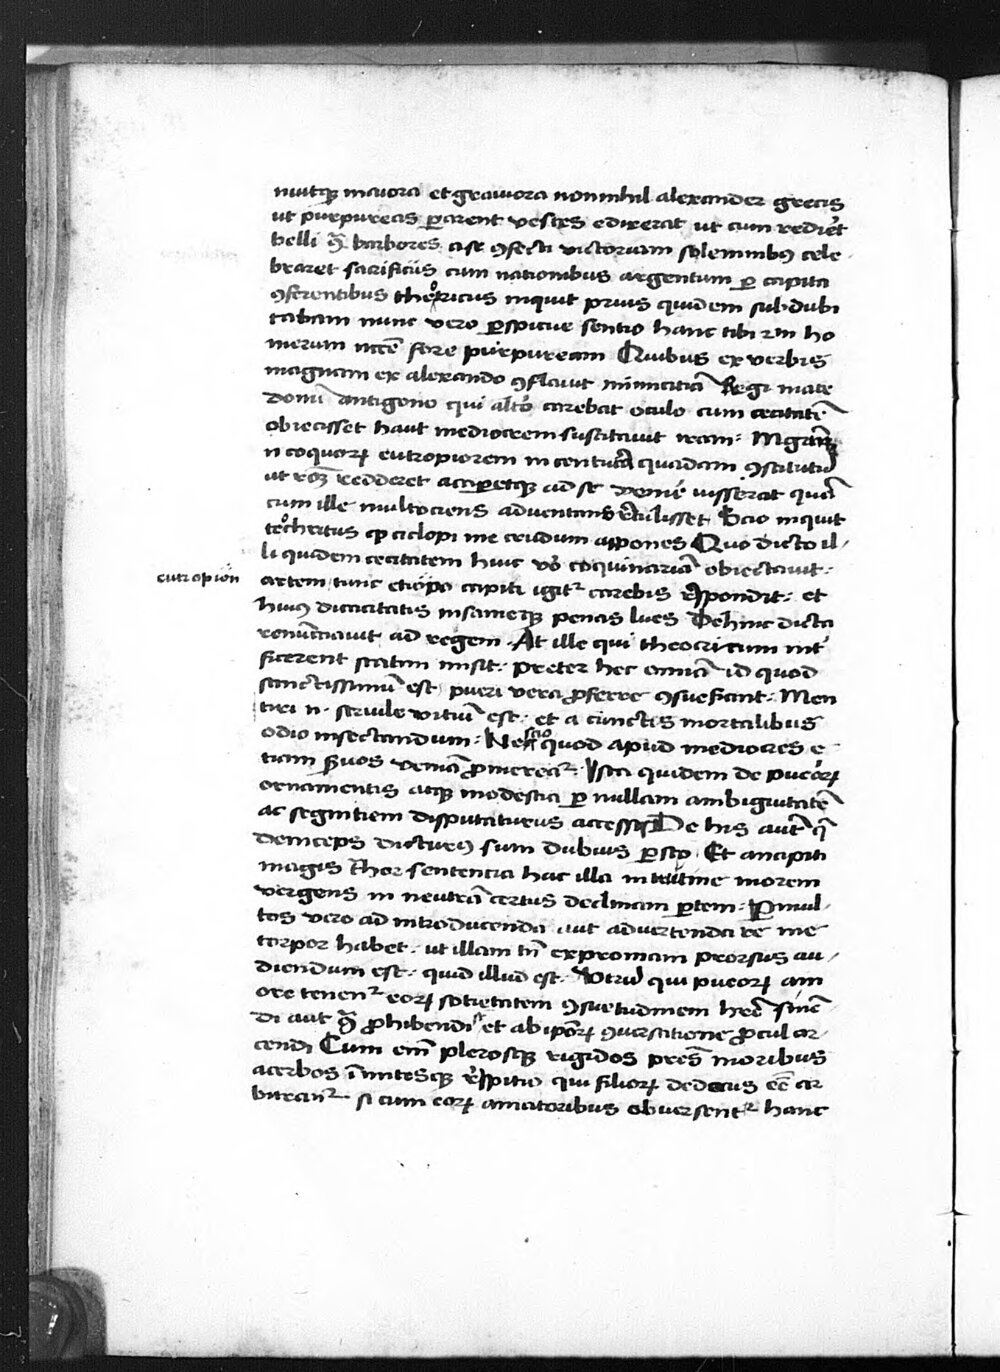 niutqꝫ maiora et graviora nonnihil alexander grecis
ut purpureas pararent vestes edixerat ut cum rediret
belli ꝗ̃ barbores a se ꝯfecti victoriam solemnibꝰ cele
braret sacrificiis cum nationibus argentum ꝑ capita
ꝯferentibus theoricus inquit prius quidem subdubi
tabam nunc vero ꝑspicue sentio hanc tibi rin ho
merum necē fore purpuream Quibus ex verbis
magnam ex alexando ꝯflavit inimicitiā Regi mace
donū antigono qui alto᷑ carebat oculo cum cecitatē
obiecisset haut mediocrem sustinuit iram
n coquoꝝ eutropiorem in centuria quadam ꝯstitutū
ut redderet acciperetqꝫ ad se venire iusserat quē
cum ille multociens adventans retulisset Scio inquit
teocheitus ꝙ ciclopi me crudum appones Quo dicto il
li quidem cecitatem huic vo᷑ coquinariā obiectavit
eutropion
artem tunc etiopo capiti igit᷑ carebis respondit et
huiꝰ dicacitatis insanieqꝫ penas lues Dehinc dicta
renunciavit ad regem At ille qui theocritum int᷑
ficerent statim misit preter hec omniā id quod
sanctissimū est pueri vera ꝓferre ꝯsuefiant Men
tiri n servile vitiū est et a cunctis mortalibus
odio insectandum Nescio quod apud mediocres e
tiam ẜvos veniā ꝓmereat᷑ Ista quidem de pueroꝝ
ornamentis atqꝫ modestia ꝑ nullam ambiguitatē
ac segnitiem disputaturus accessi De his aut̄ q̄
deinceps dicturꝰ sum dubius ꝑsto Et ancipiti
magis Rhor sentencia hac illa in trutine morem
vergens in neutrā certus declinam ꝑtem Ꝑmul
tos vero ad introducenda aut advertenda re me
torpor habet ut illam tn̄ expromam prorsus au
diendum est quid illud est Utrū qui pueoꝝ am
ore tenen᷑ eoꝝ sotietatem ꝯsuetudinem here᷑ sinē
di aut ꝗ̃ ꝓhibendi et ab ipoꝝ ꝯversatione ꝓcul ar
cendi Cum em̄ plerosqꝫ rigidos pres̄ moribus
acerbos īmitesqꝫ respitio qui filioꝝ dedecus eē ar
bitran᷑ si cum eoꝝ amatoribus obversent᷑ hanc